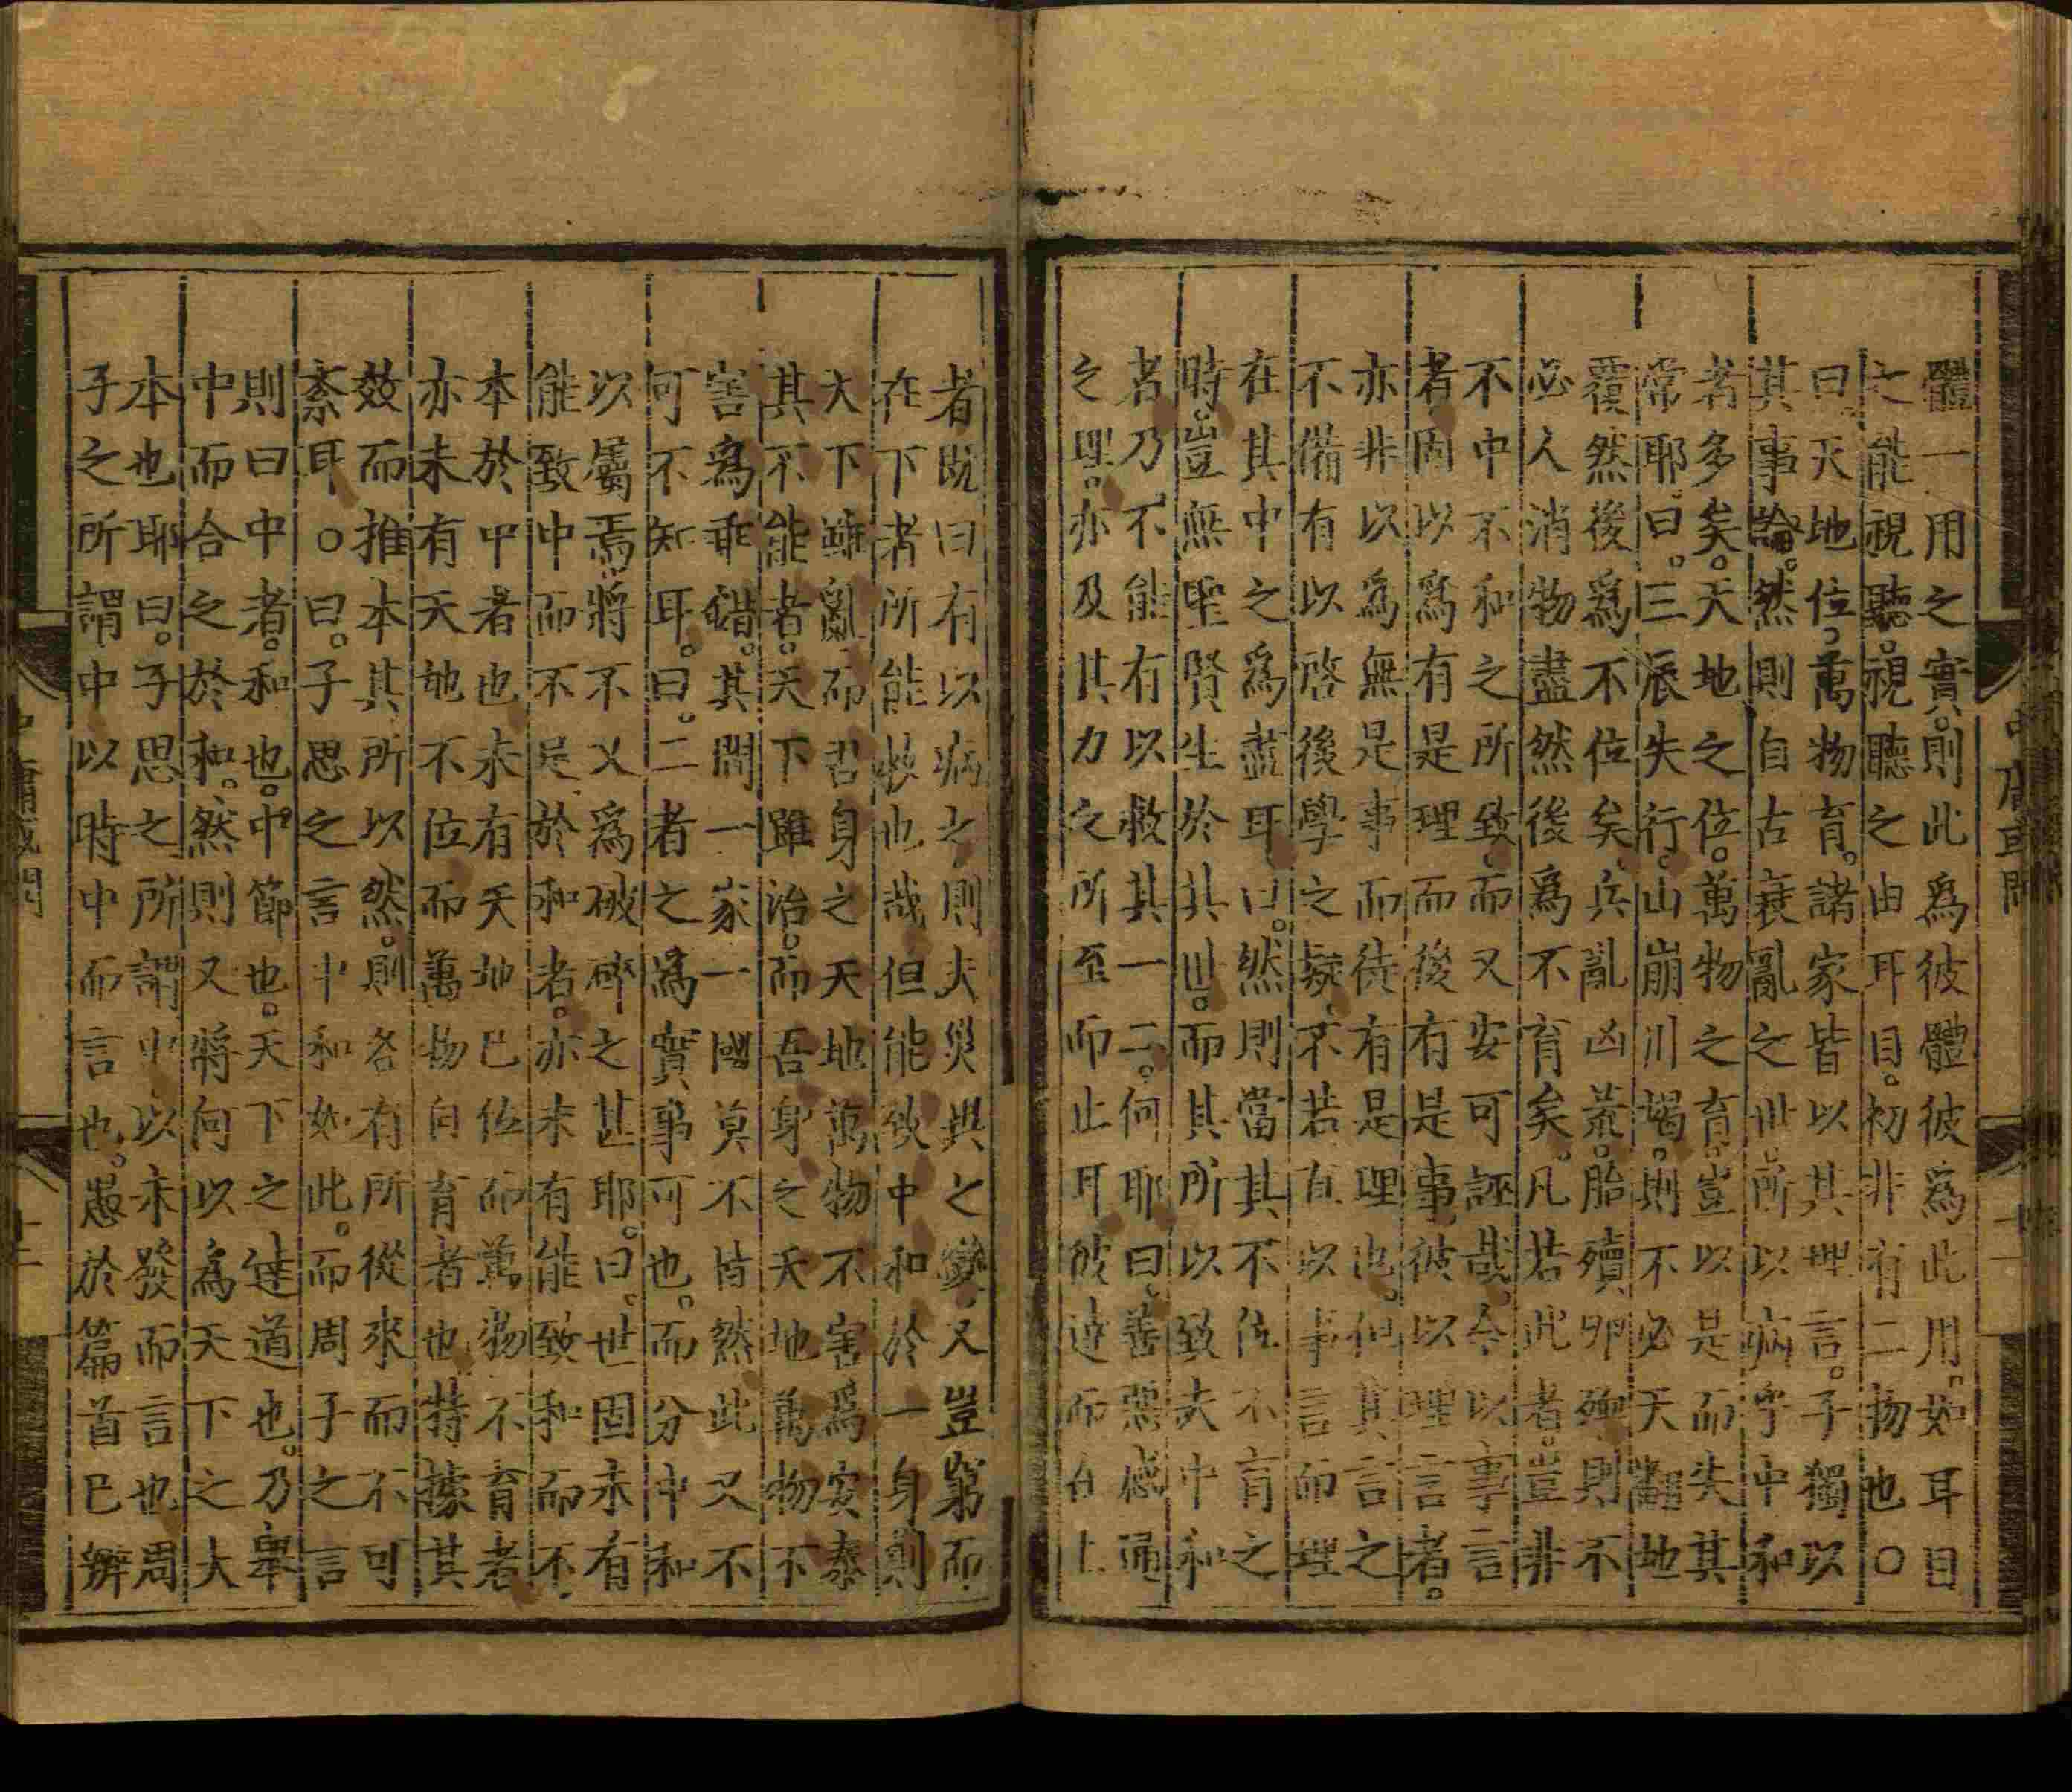 體一用之實。則此爲彼體彼爲此用。如耳目
之能視聽。視聽之由耳目。初非有二物也○
曰。天地位。萬物育。諸家皆以其理言。子獨以
其事論。然則自古衰亂之世。所以病乎中和
者多矣。天地之位。萬物之育。豈以是而失其
常耶。曰。三辰失行。山崩川竭。則不必天翻地
覆然後爲不位矣。兵亂凶荒。胎殰卵殈則不
必人消物盡然後爲不育矣。凡若此者。豈非
不中不和之所致。而又安可誣哉。今以事言
者。固以爲有是理而後有是事。彼以理言者。
亦非以爲無是事而徒有是理也。但其言之
不備有以啓後學之疑。不若直以事言而理
在其中之爲盡耳。曰。然則當其不位不育之
時。豈無聖賢生於其世。而其所以致夫中和
者乃不能有以救其一二。何耶曰。善惡感通
之理。亦及其力之所至而止耳彼達而在上
者既曰有以病之。則夫災異之變。又豈窮而
在下者所能救也哉但能致中和於一身則
天下雖亂而吾身之天地萬物不害爲安泰
其不能者。天下雖治。而吾身之天地萬物不
害爲乖錯。其間一家一國莫不皆然此又不
可不知耳。曰。二者之爲實事可也。而分中和
以屬焉。將不又爲破碎之甚耶。曰。世固未有
能致中而不足於和者。亦未有能致和而不
本於中者也未有天地已位而萬物不育者
亦未有天地不位而萬物自育者也特據其
效而推本其所以然。則各有所從來而不可
紊耳。○曰。子思之言中和如此。而周子之言
則曰中者。和也。中節也。天下之達道也。乃舉
中而合之於和。然則又將何以爲天下之大
本也耶曰。子思之所謂中。以未發而言也周
子之所謂中以時中而言也。愚於篇首已辨
中庸或問